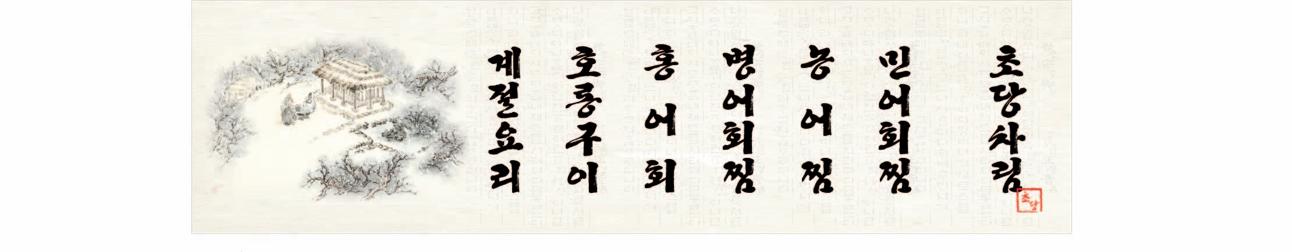 초당차림
민어회찜
능어찜
병어회찜
홍어회
호롱구이
계절요리
초당